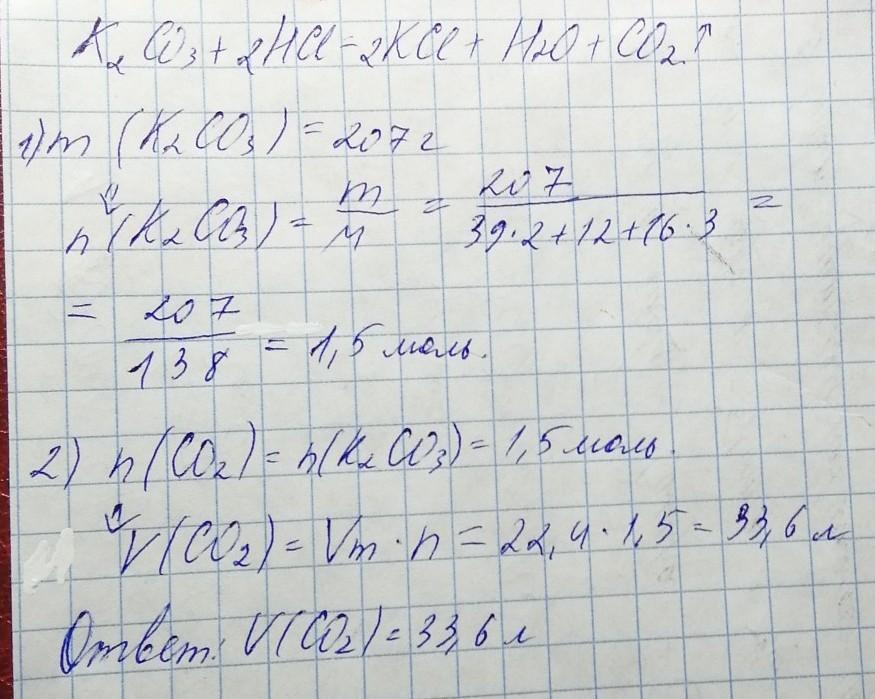 K₂CO₃ + 2HCl = 2KCl + H₂O + CO₂↑
1) m (K₂CO₃) = 207 г
n (K₂CO₃) = m/M = 207/(39·2+12+16·3) =
= 207/138 = 1,5 моль.
2) n(CO₂) = n(K₂CO₃) = 1,5 моль.
V(CO₂) = Vm · n = 22,4 · 1,5 = 33,6 л
Ответ: V(CO₂) = 33,6 л